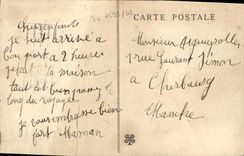 CARTE POSTALE
Chers enfants
je suis arrivé a
bon port a 2 heures
la maison
tout est bien
long du
je vous embrasse bien
fort Maman
Monsieur
rue Laurent Simon
a Cherbourg
Manche